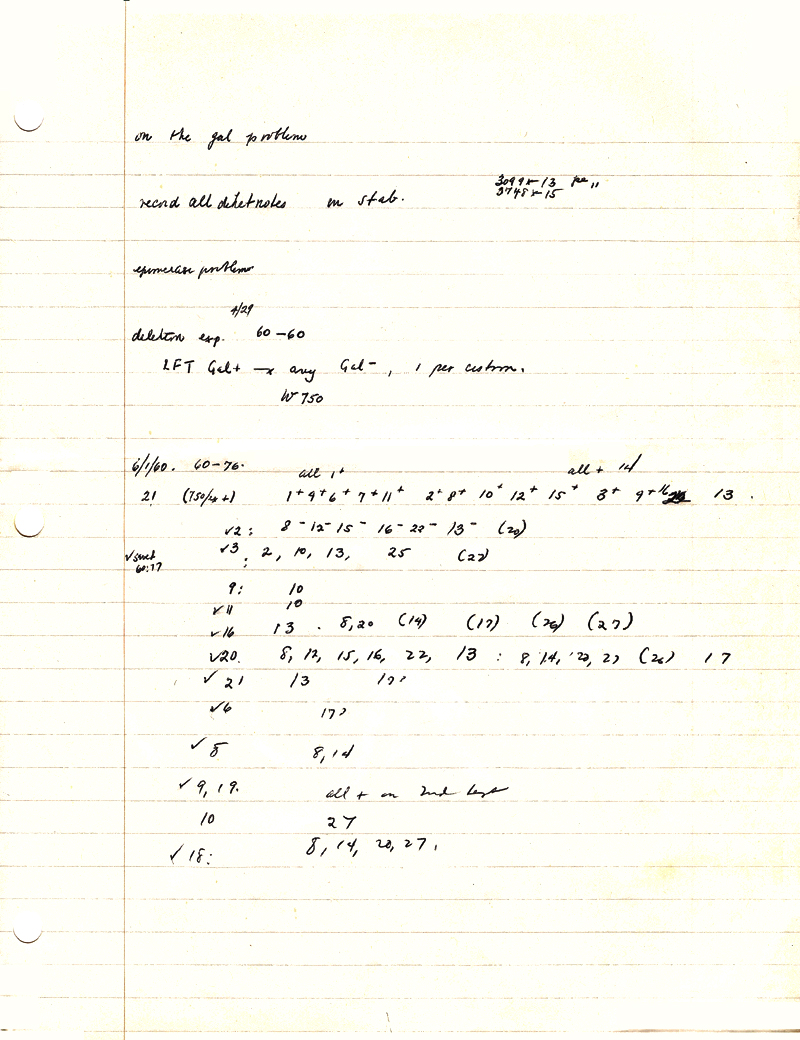 on the gal problem
3099 x 13
3748 x 15
record all notes on stab.
epimerase problem
4/29
deletion exp. 60-60
LFT Gal+ —x any Gal-, 1 per custom.
W 750
6/1/60. 60-76. all 1+ all + 14
21 (750/4+) 1+ 9+ 6+ 7+ 11+ 2+ 8+ 10+ 12+ 15+ 3+ 9+ 16 13.
✓2: 8- 12- 15- 16- 22- 13- (20)
✓3: 2, 10, 13, 25 (22)
60:77
9: 10
✓11 10
✓16 13 . 8,20 (14) (17) (26) (27)
✓20. 8, 12, 15, 16, 22, 13 : 8, 14, 20, 27 (26) 17
✓ 21 13 17?
✓6 17?
✓ 8 8, 14
✓ 9, 19. all + on 2nd test
10 27
✓ 18: 8, 14, 20, 27.